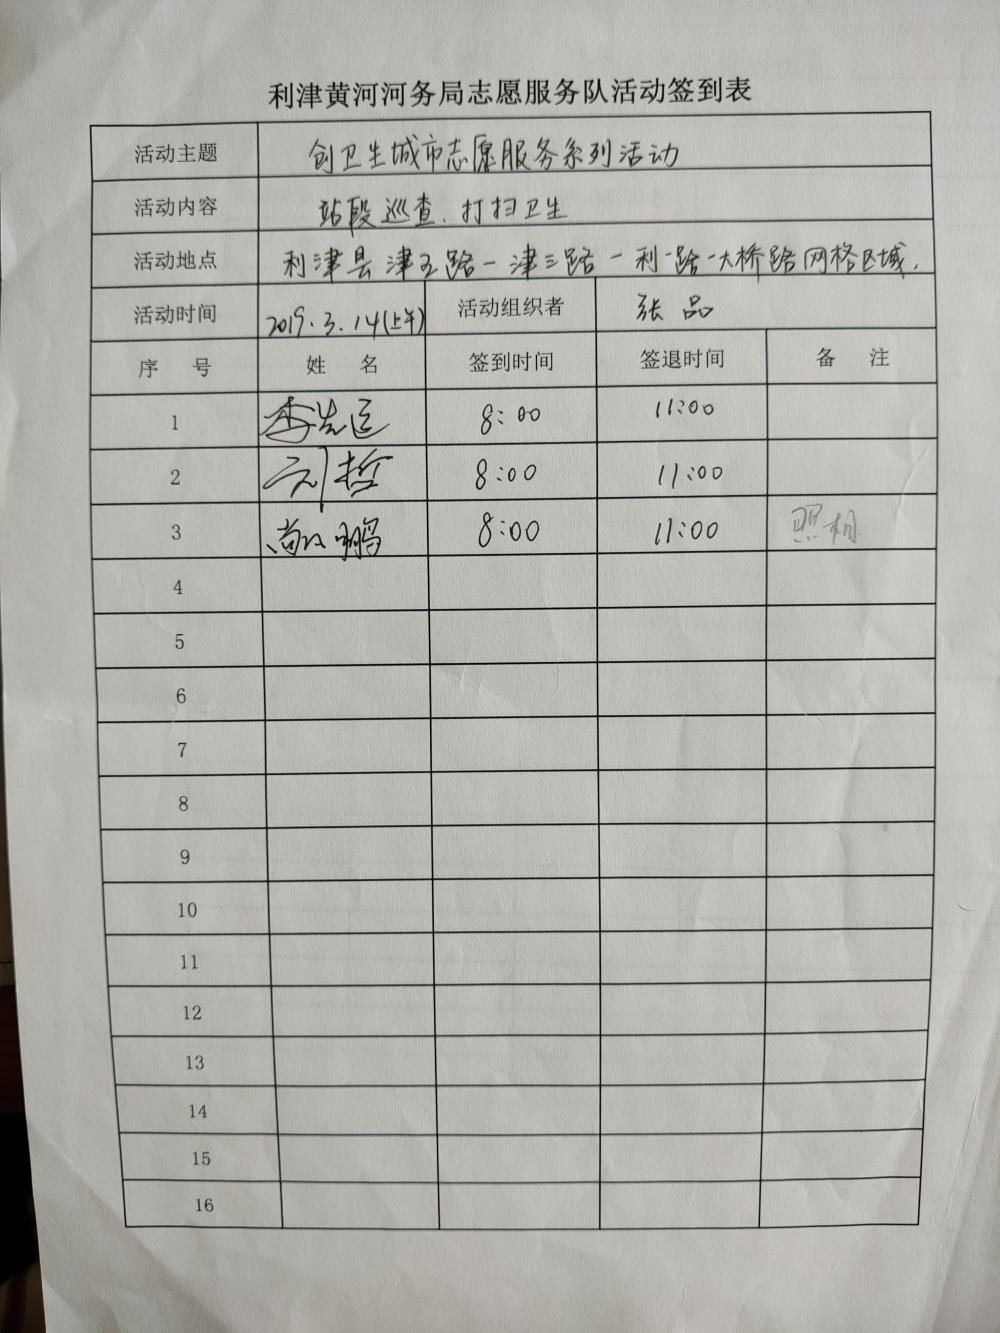 利津黄河河务局志愿服务队活动签到表
活动主题 创卫生城市志愿服务系列活动
活动内容 站段巡查、打扫卫生
活动地点 利津县津五路-津三路-利一路-大桥路网格区域.
活动时间 2019.3.14(上午) 活动组织者 张品
序 号 姓 名 签到时间 签退时间 备 注
1 李先臣 8:00 11:00
2 刘哲 8:00 11:00
3 鹏 8:00 11:00 照相
4
5
6
7
8
9
10
11
12
13
14
15
16